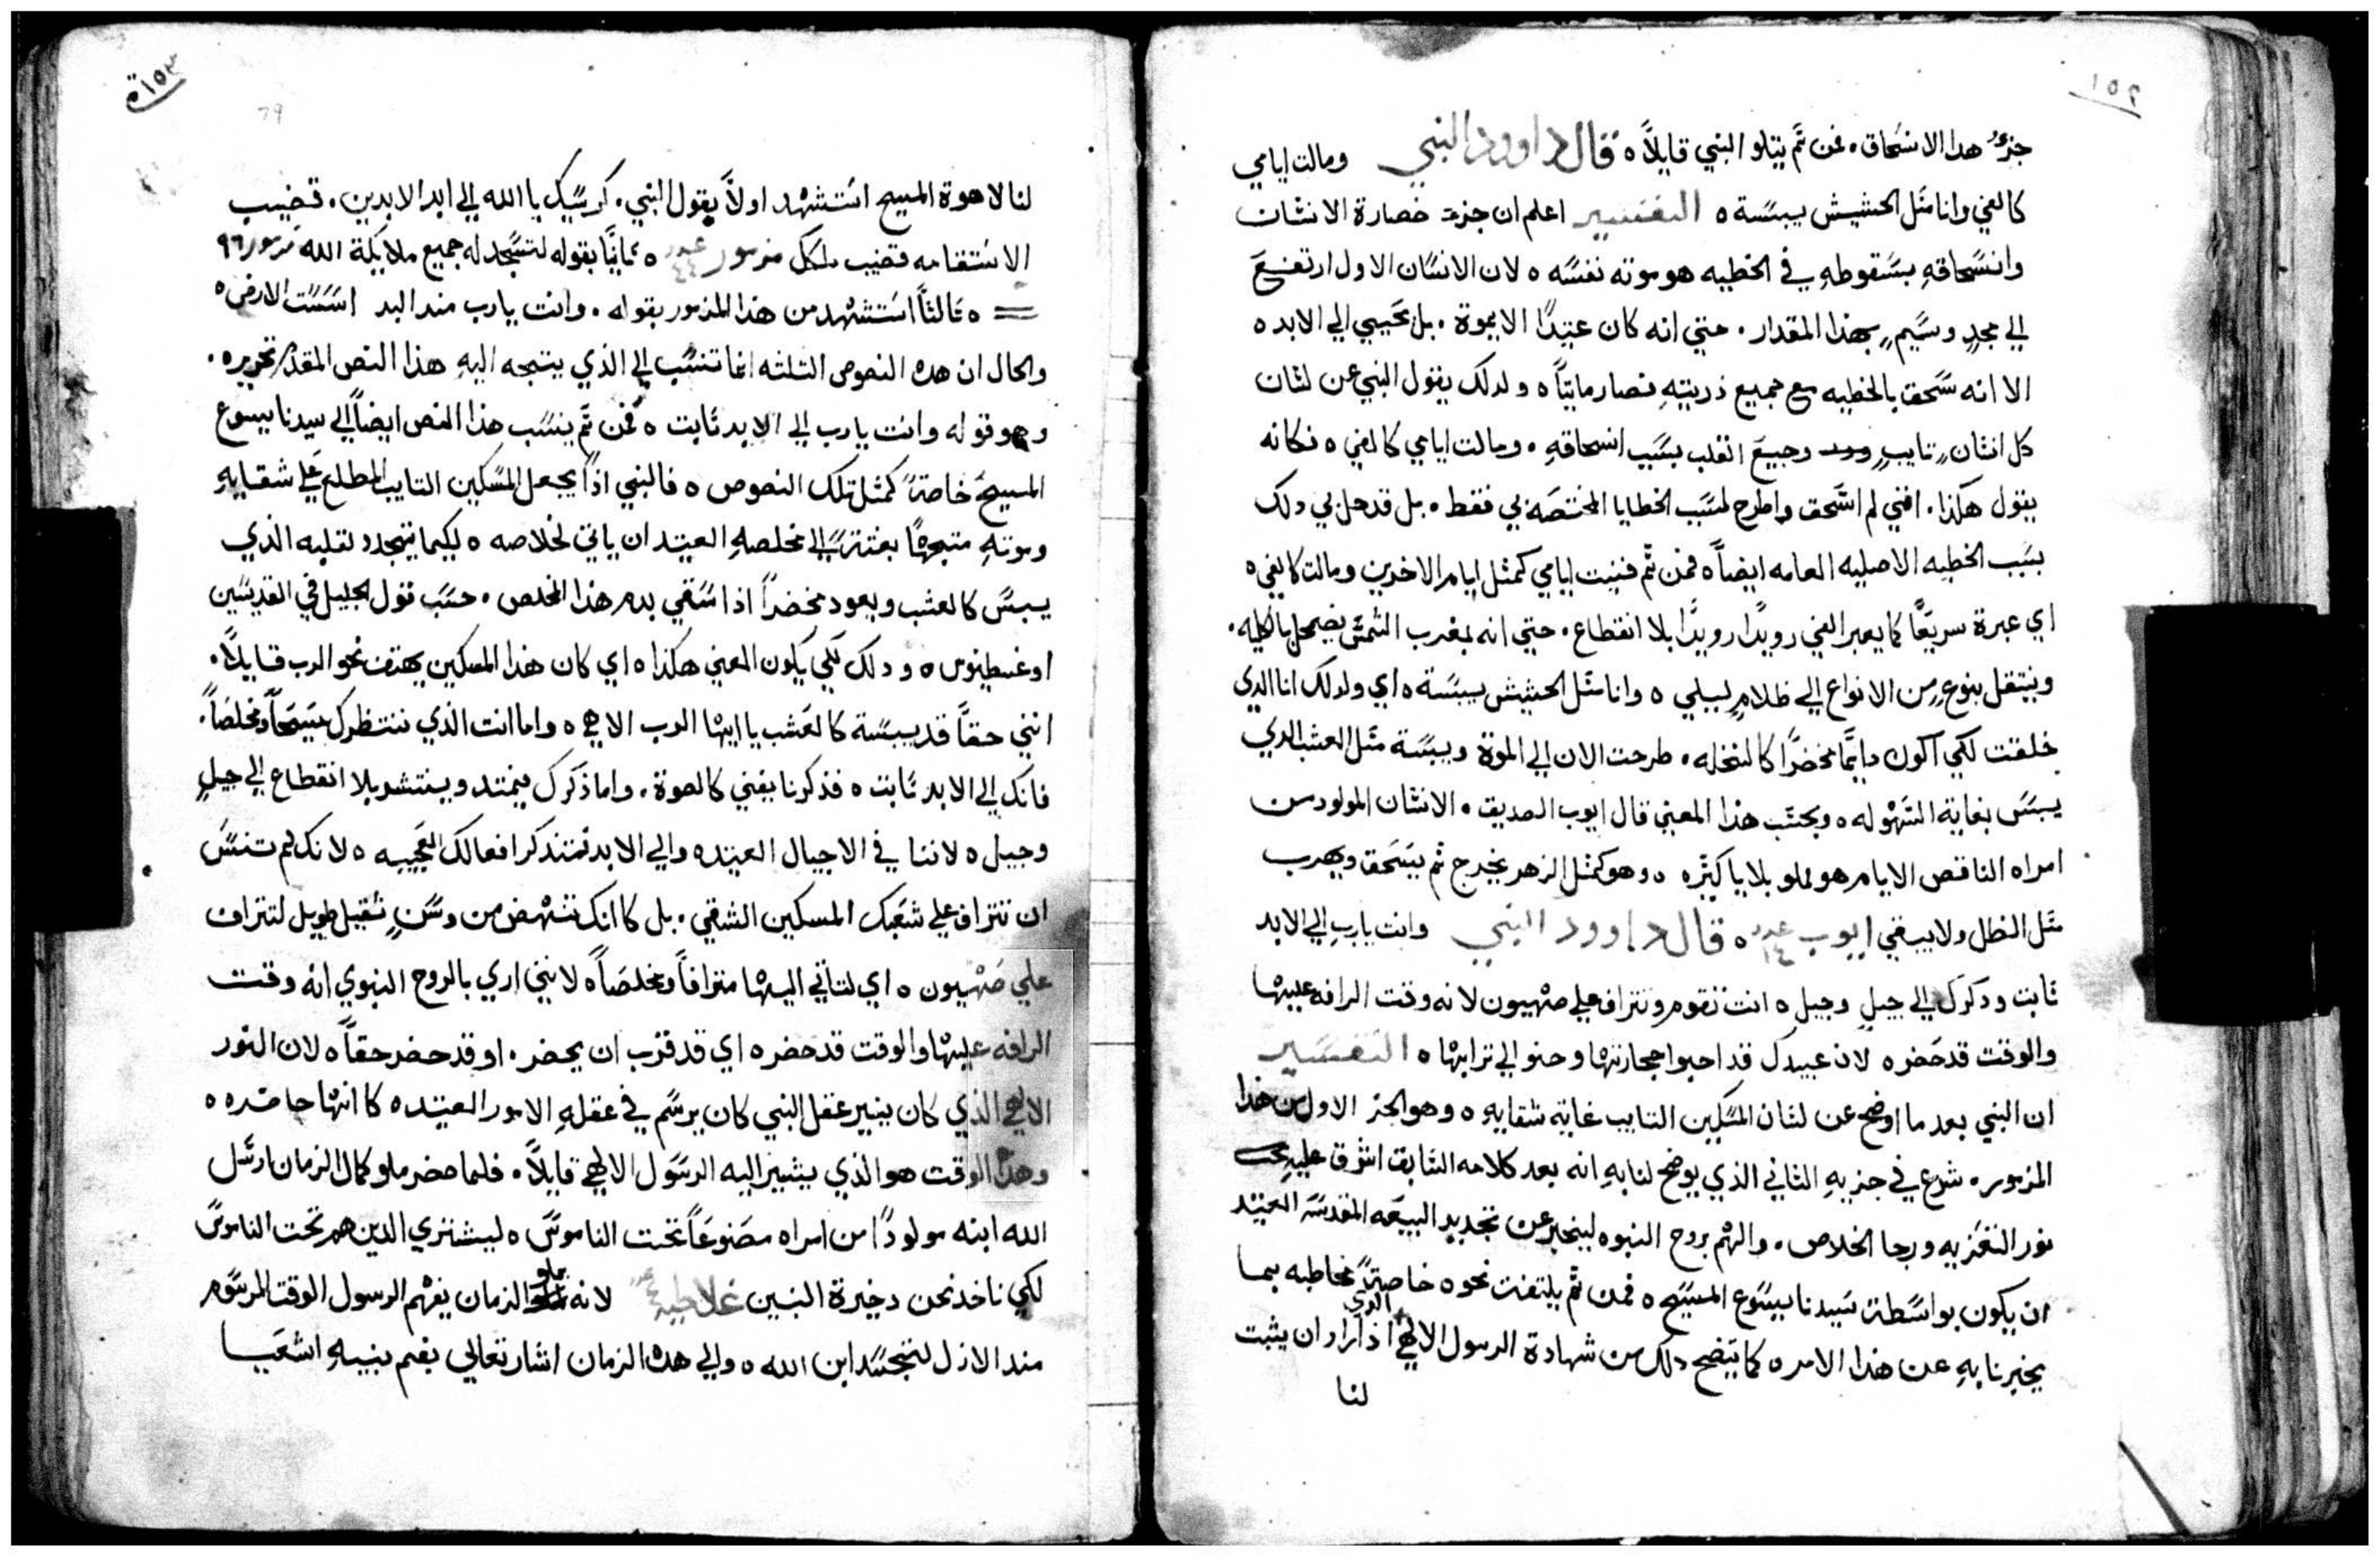 ١٥٢
جزؤ هدا الانسحاق. فمن ثم يتلو النبي قايلاً ه قال داوود النبي ومالت ايامي
كالفي وانا مثل الحشيش يبسة ه التفسير اعلم ان جزء خصارة الانسان
وانسحاقهِ بسقوطهِ في الخطيه هو موته نفسه ه لان الانسان الاول ارتفع
الي مجدٍ وسيمٍ بهذا المقدار. حتي انه كان عتيدًا الا يموة. بل يحيي الي الابد ه
الا انه سحق بالخطيه مع جميع ذريتهِ فصار مايتاً ه ولدلك يقول النبي عن لسان
كل انسان تايبٍ وجيع القلب بسبب انسحاقهِ. ومالت ايامي كالفي ه فكانه
يقول هكذا. انني لم انسحق واطرح لسبب الخطايا المختصه بي فقط. بل قد حل بي دلك
بسبب الخطيه الاصليه العامه ايضاً ه فمن ثم فنيت ايامي كمثل ايام الاخرين ومالت كالفي ه
اي عبرة سريعًا كما يعبر الفي رويدًا رويدًا بلا انقطاع. حتي انه بمغرب الشمس يضمحل بالكليه.
وينتقل بنوعٍ من الانواع الي ظلامٍ ليلي ه وانا مثل الحشيش يبسة ه اي ولدلك انا الدي
خلقت لكي اكون دايمًا مخضرًا كالنخله. طرحت الان الي الموة ويبسة مثل العشب الدي
يبس بغاية السهوله ه وبحسب هذا المعني قال ايوب الصديق. الانسان المولود من
امراه الناقص الايام هو مملو بلايا كثيره ه وهو كمثل الزهر يخرج ثم ينسحق ويهرب
مثل الظل ولا يبقي ايوب عدد ١٤ ه قال داوود النبي وانت يارب الي الابد
ثابت ودكرك الي جيلٍ وجيل ه انت تقوم وتتراف علي صهيون لانه وقت الرافه عليها
والوقت قد حضر ه لان عبيدك قد احبوا حجارتها وحنو الي ترابها ه التفسير
ان النبي بعد ما اوضح عن لسان المسكين التايب غاية شقايهِ ه وهو الجز الاول من هذا
المزمور. شرع في جزيهِ الثاني الذي يوضح لنا بهِ انه بعد كلامه السابق اشرق عليهِ
نور التعزيه ورجا الخلاص. والهم بروح النبوه ليخبر عن تجديد البيعه المقدسه العتيد
ان يكون بواسطة سيدنا يسوع المسيح ه فمن ثم يلتفت نحوه خاصةً مخاطبه بما
يخبرنا بهِ عن هذا الامر ه كما يتضح دلك من شهادة الرسول الالهي الدي اذ اراد ان يثبت
لنا
١٥٣
79
لنا لاهوة المسيح استشهد اولاً بقول النبي. كرسيك يا الله الي ابد الابدين. قضيب
الاستقامه قضيب ملكك مزمور عدد ٤٤ ه ثانيًا بقوله لتسجد له جميع ملايكة الله مزمور ٩٦
ه ثالثاً استشهد من هذا المزمور بقوله. وانت يارب مند البد اسست الارض ه
والحال ان هده النصوص الثلثه انما تنسب الي الذي يتجه اليهِ هذا النص المقدم تحريره.
وهو قوله وانت يارب الي الابد ثابت ه فمن ثم ينسب هذا النص ايضاً الي سيدنا يسوع
المسيح خاصةً كمثل تلك النصوص ه فالنبي اذاً يجعل المسكين التايب المطلع علي شقايهِ
وموتهِ متجهًا بغتةً الي مخلصهِ العتيد ان ياتي لخلاصه ه لكيما يتجدد قلبه الذي
يبس كالعشب ويعود مخضراً اذا سقي بدم هذا المخلص. حسب قول الجليل في القديسين
اوغسطينوس ه ودلك لكي يكون المعني هكذا ه اي كان هذا المسكين يهتف نحو الرب قايلاً.
انني حقاً قد يبسة كالعشب يا ايها الرب الاهي ه واما انت الذي ننتظرك مسيحاً ومخلصاً.
فانك الي الابد ثابت ه فذكرنا يفني كالصوة. واما ذكرك يمتد وينتشر بلا انقطاع الي جيلٍ
وجيل ه لاننا في الاجيال العتيده والي الابد نتذكر افعالك العجيبه ه لانك لم تنس
ان تتراف علي شعبك المسكين الشقي. بل كانك تنهض من وسنٍ ثقيل طويل لتتراف
علي صهيون ه اي لتاتي اليها مترافاً ومخلصاً ه لانني اري بالروح النبوي انه وقت
الرافه عليها والوقت قد حضر ه اي قد قرب ان يحضر. او قد حضر حقاً ه لان النور
الالهي الذي كان ينير عقل النبي كان يرسم في عقلهِ الامور العتيده كانها حاضره ه
وهذا الوقت هو الذي يشير اليه الرسول الالهي قايلاً. فلما حضر ملو كمال الزمان ارسل
الله ابنه مولودًا من امراه مصنوعاً تحت الناموس ه ليشتري الدين هم تحت الناموس
لكي ناخد نحن دخيرة البنين غلاطيه عدد ٤ لانه بملو الزمان يفهم الرسول الوقت المرسوم
مند الازل لتجسد ابن الله ه والي هده الزمان اشار تعالي بفم نبيهِ اشعيا